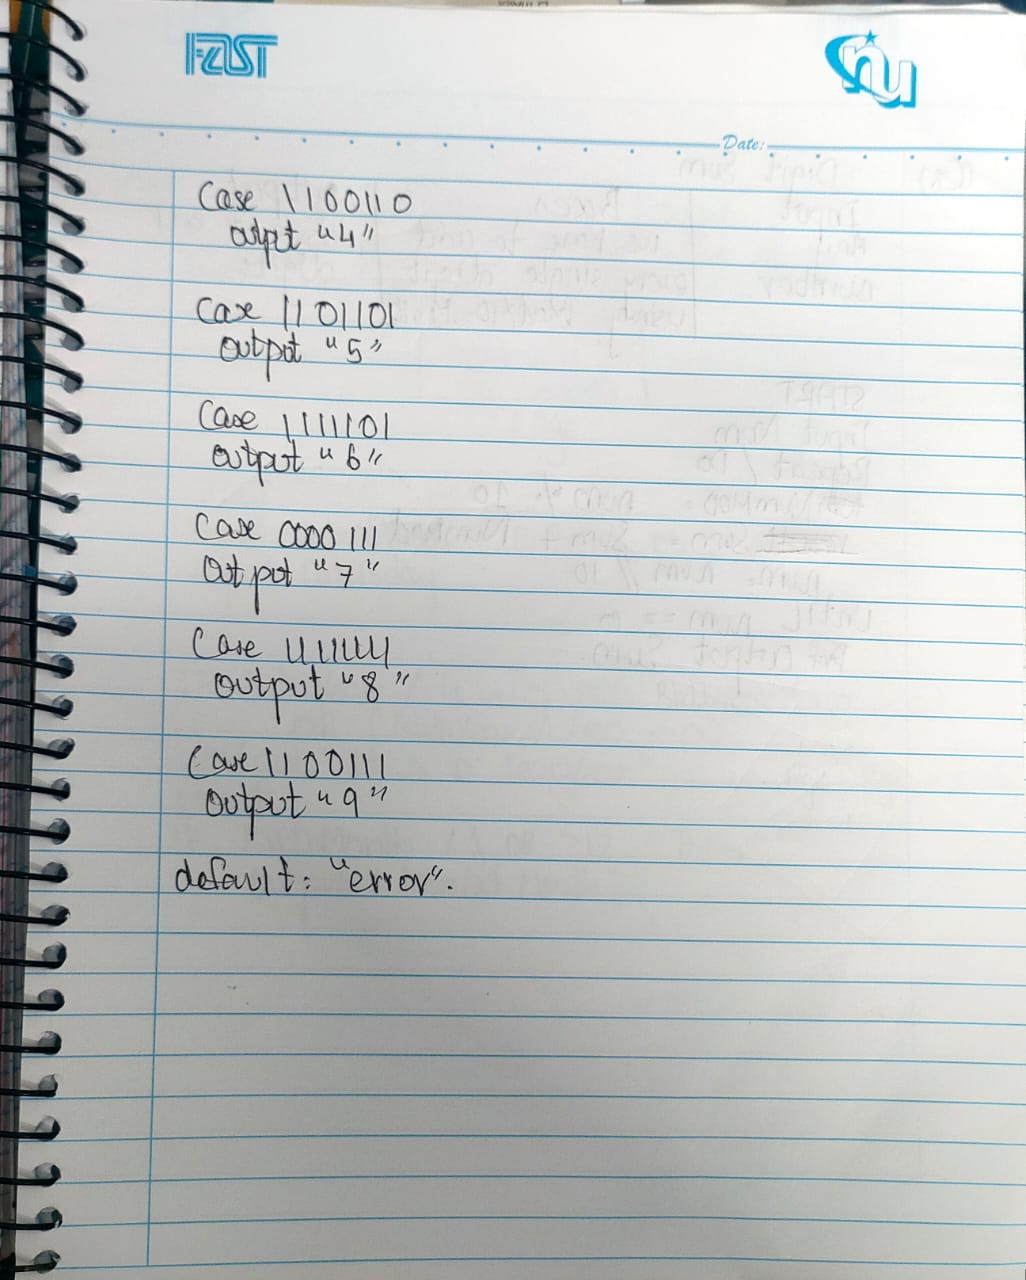 FAST
nu
Date:
Case 1100110
output "4"
Case 1101101
output "5"
Case 1111101
output "6"
Case 0000111
Output "7"
Case 1111111
output "8"
Case 1100111
output "9"
default: "error".